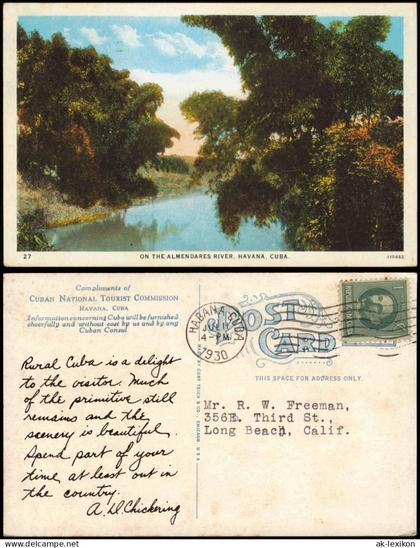 27
ON THE ALMENDARES RIVER, HAVANA, CUBA.
110652
Compliments of
CUBAN NATIONAL TOURIST COMMISSION
HAVANA, CUBA
Information concerning Cuba will be furnished
cheerfully and without cost by us and by any
Cuban Consul
HABANA, CUBA
4-PM
1930
POST
CARD
THIS SPACE FOR ADDRESS ONLY.
Rural Cuba is a delight
to the visitor. Much
of the primitive still
remains and the
scenery is beautiful.
Spend part of your
time at least out in
the country.
A. D. Chickering
MADE BY CURT TEICH & CO., CHICAGO, U.S.A.
Mr. R. W. Freeman,
356E. Third St.,
Long Beach, Calif.
© ak-lexikon
ak-lexikon.com